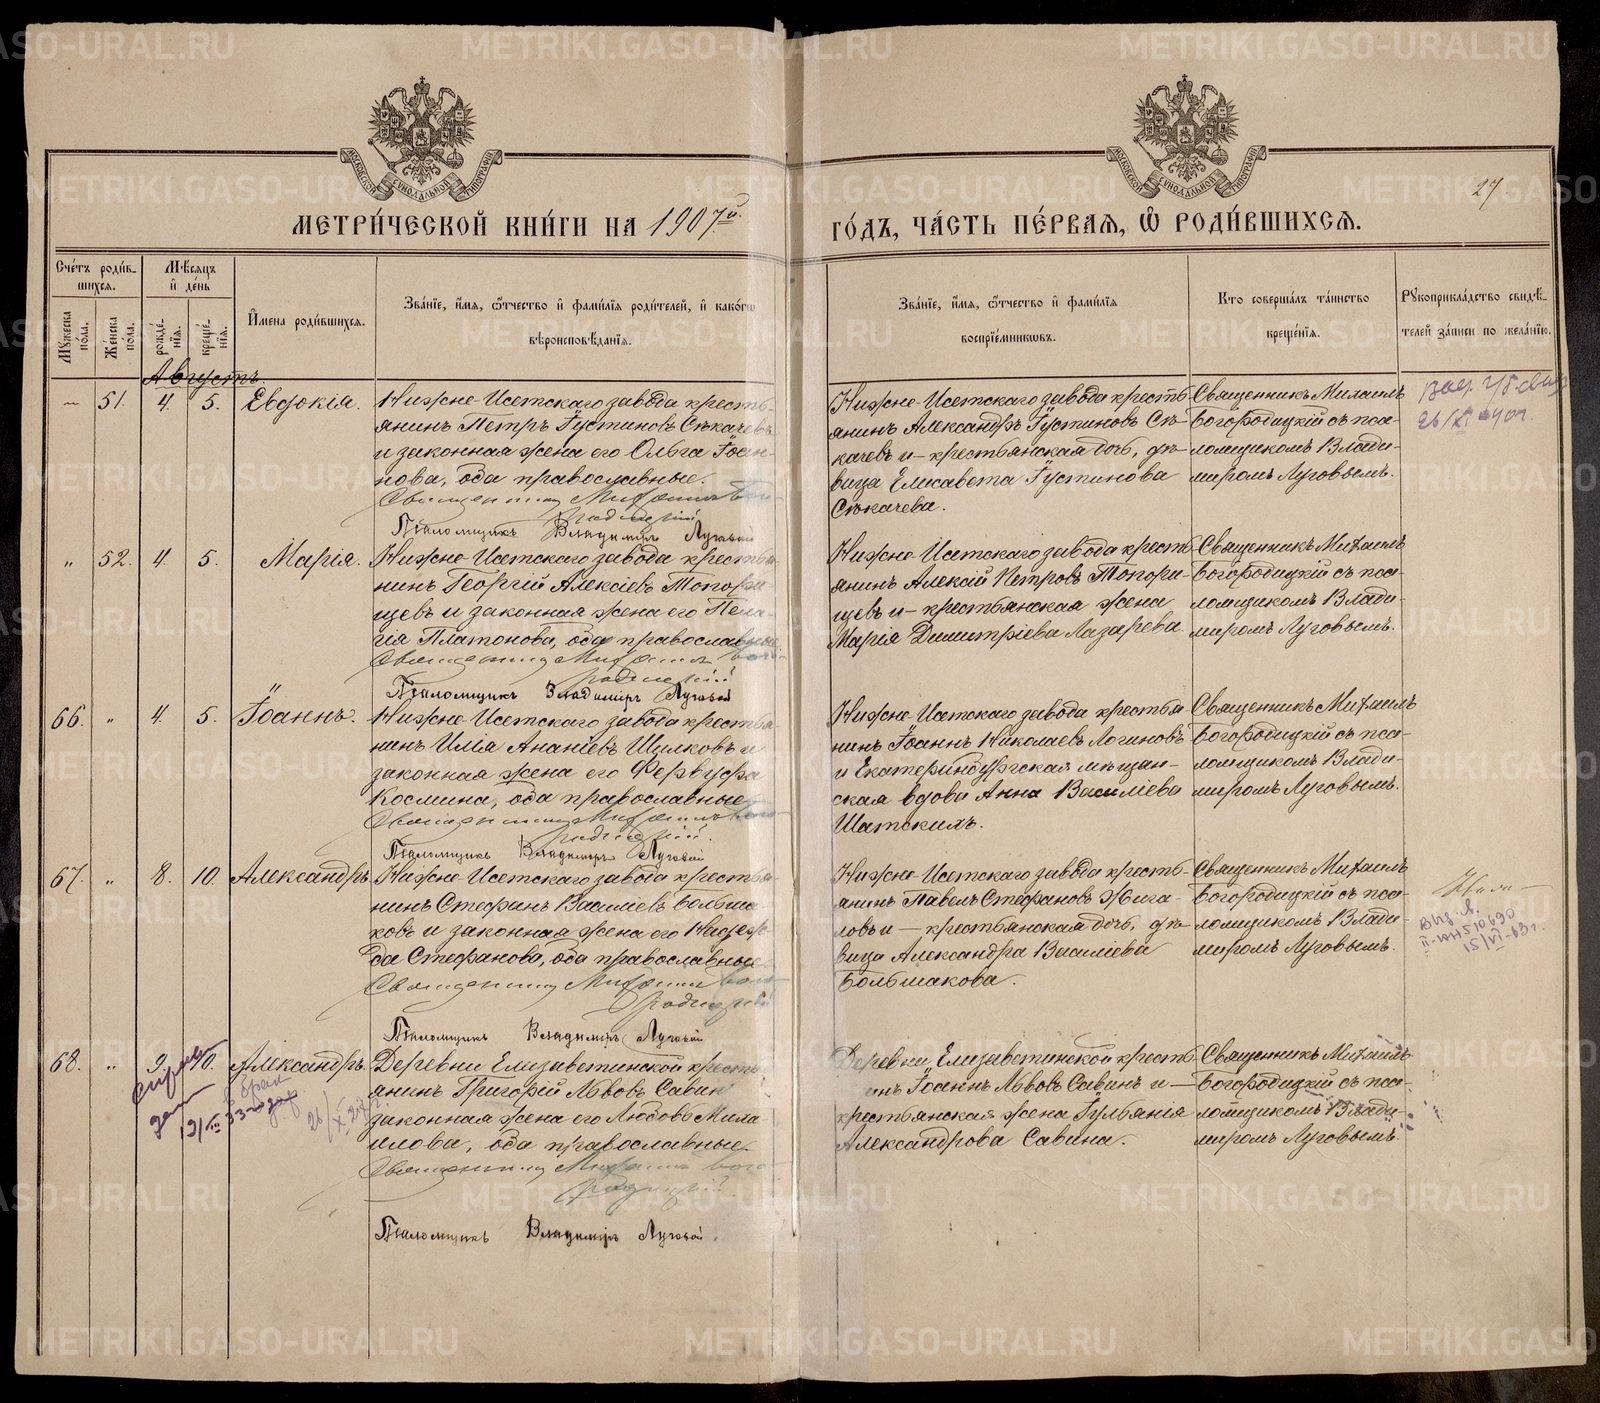 МЕТРИ́ЧЕСКОЙ КНИ́ГИ НА 1907й.
ГО́ДЪ, ЧА́СТЬ ПЕ́РВАЯ, Ѡ҆ РОДИ́ВШИХСЯ.
27
Счéтъ роди́в-
шихся.
Мѣ́сяцъ
и҆ де́нь
И҆мена роди́вшихся.
Зва́нїе, и҆́мя, ѻ҆́тчество и҆ фами́лїя роди́телей, и҆ како́гѡ
вѣроисповѣ́данїя.
Зва́нїе, и҆́мя, ѻ҆́тчество и҆ фами́лїя
воспрїе́мникѡвъ.
Кто̀ соверша́лъ та́инство
креще́нїя.
Рꙋкоприкла́дство свидѣ́-
телей за́писи по жела́нїю.
Мꙋ́жеска
по́ла.
Же́нска
по́ла.
рожде́-
нїя.
креще́-
нїя.
Августъ.
51. 4. 5. Евдокія.
Нижне-Исетскаго завода кресть-
янинъ Петръ Іустиновъ Сѣкачевъ
и законная жена его Ольга Іоан-
нова, оба православные.
Священникъ Михаилъ Бого-
родицкій
Псаломщикъ Владиміръ Луговой
Нижне-Исетскаго завода кресть-
янинъ Александръ Іустиновъ Сѣ-
качевъ и — крестьянская дочь, дѣ-
вица Елисавета Іустинова
Сѣкачева.
Священникъ Михаилъ
Богородицкій съ пса-
ломщикомъ Влади-
миромъ Луговымъ.
„ 52. 4. 5. Марія.
Нижне-Исетскаго завода крестья-
нинъ Георгій Алексіевъ Топори-
щевъ и законная жена его Пела-
гія Платонова, оба православные
Священникъ Михаилъ Бого-
родицкій
Псаломщикъ Владиміръ Луговой
Нижне-Исетскаго завода кресть-
янинъ Алексій Петровъ Топори-
щевъ и — крестьянская жена
Марія Димитріева Лазарева.
Священникъ Михаилъ
Богородицкій съ пса-
ломщикомъ Влади-
миромъ Луговымъ.
66. „ 4. 5. Іоаннъ.
Нижне-Исетскаго завода крестья-
нинъ Илія Ананіевъ Шулковъ и
законная жена его Фервуѳа
Космина, оба православные
Священникъ Михаилъ Бого-
родицкій.
Псаломщикъ Владиміръ Луговой
Нижне-Исетскаго завода крестья-
нинъ Іоаннъ Николаевъ Логиновъ
и Екатеринбургская мѣщан-
ская вдова Анна Василіева
Шатскихъ.
Священникъ Михаилъ
Богородицкій съ пса-
ломщикомъ Влади-
миромъ Луговымъ.
67. „ 8. 10. Александръ
Нижне-Исетскаго завода крестья-
нинъ Стефанъ Василіевъ Больша-
ковъ и законная жена его Надеж-
да Стефанова, оба православные
Священникъ Михаилъ Бого-
родицкій
Псаломщикъ Владиміръ Луговой
Нижне-Исетскаго завода кресть-
янинъ Павелъ Стефановъ Жига-
ловъ и — крестьянская дочь, дѣ-
вица Александра Василіева
Большакова.
Священникъ Михаилъ
Богородицкій съ пса-
ломщикомъ Влади-
миромъ Луговымъ.
Выд. св.
15/VI-63г.
68. „ 9. 10. Александръ.
справка
дана
Деревни Елизаветинской кресть-
янинъ Григорій Львовъ Савин
законная жена его Любовь Миха
илова, оба православные.
Священникъ Михаилъ Бого-
родицкій
Псаломщикъ Владиміръ Луговой.
Деревни Елизаветинской кресть-
инъ Іоаннъ Львовъ Савинъ и —
крестьянская жена Іуліанія
Александрова Савина.
Священникъ Михаилъ
Богородицкій съ пса-
ломщикомъ Влади-
миромъ Луговымъ.
METRIKI.GASO-URAL.RU